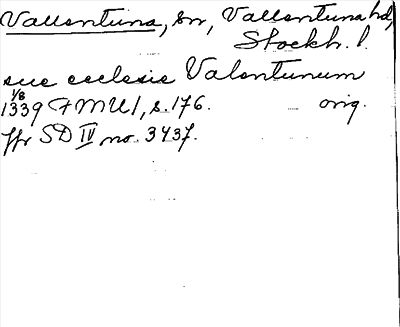 Vallentuna, sn, Vallentuna hd,
Stockh. l.
sue ecclesie Valentunum
1/8
1339 FMU I, s. 176. orig.
jfr SD IV no. 3437.